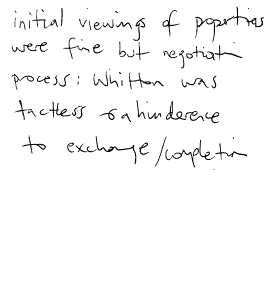 initial viewings of poperties
were fine but negotiatin
process: Whitton was
tactless & a hinderence
to exchange/completin